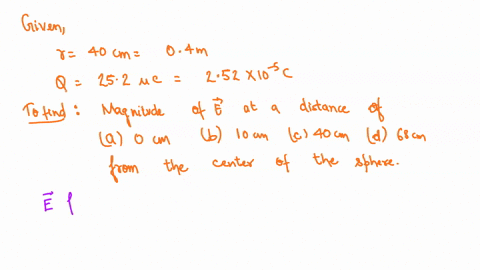 Given,
r = 40 cm = 0.4 m
Q = 25.2 μc = 2.52 X10⁻⁵ C
To find : Magnitude of E⃗ at a distance of
(a) 0 cm (b) 10 cm (c) 40 cm (d) 68 cm
from the center of the sphere.
E⃗